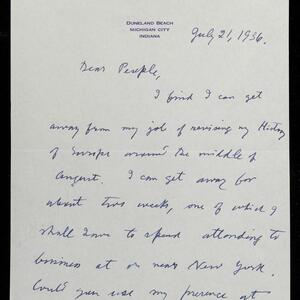 DUNELAND BEACH
MICHIGAN CITY
INDIANA
July 21, 1936.
Dear People,
I find I can get
away from my job of revising my History
of Europe around the middle of
August. I can get away for
about two weeks, one of which I
shall have to spend attending to
business at or near New York.
Could you use my presence at